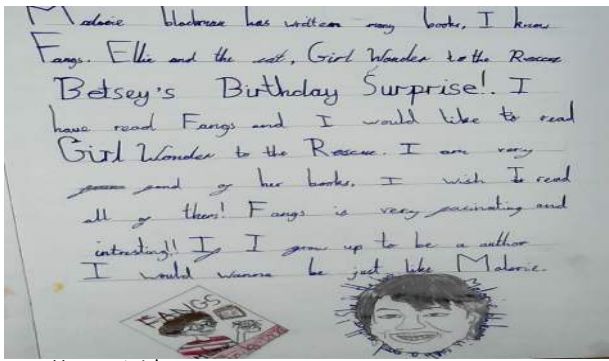 Malorie blackman has written many books, I know
Fangs. Ellie and the cat, Girl Wonder to the Rescue
Betsey's Birthday Surprise!. I
have read Fangs and I would like to read
Girl Wonder to the Rescue. I am very
fond of her books, I wish to read
all of them! Fangs is very facinating and
intresting!! If I grow up to be a author
I would wanna be just like Malorie.
FANGS